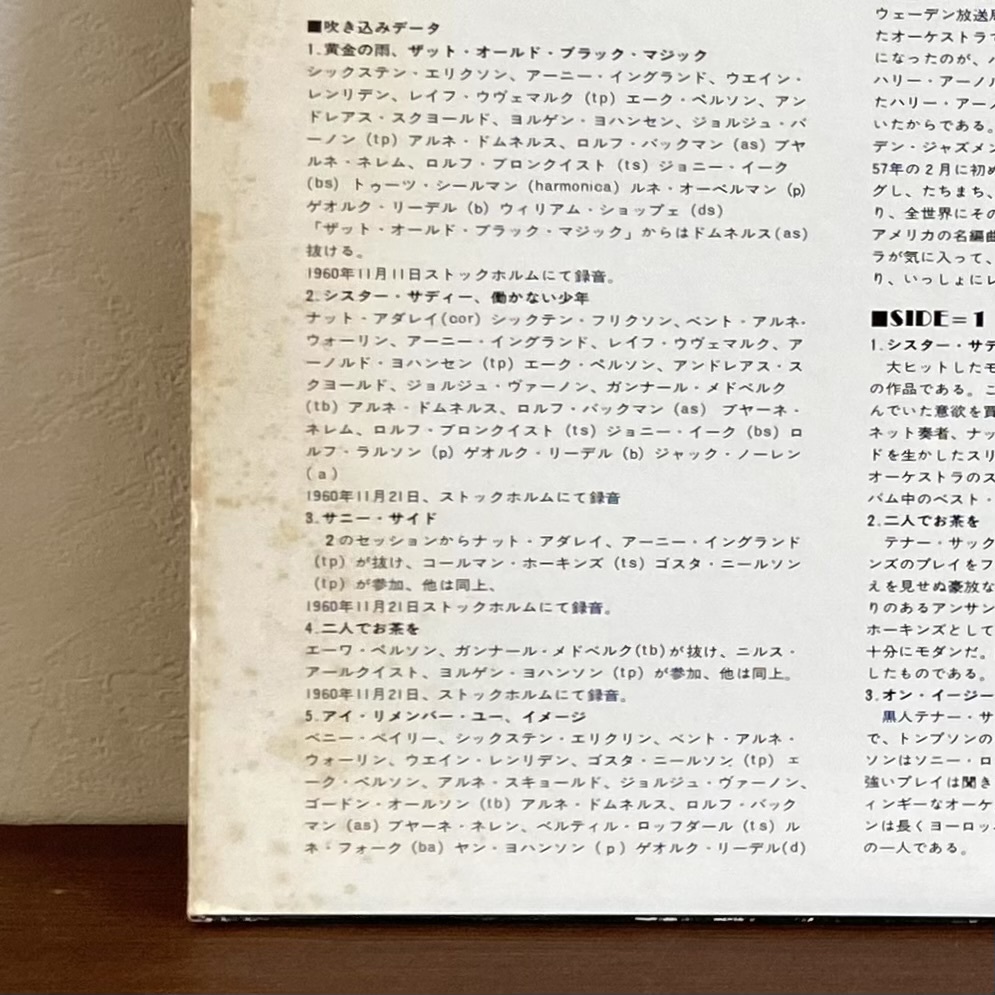 ■吹き込みデータ
1.黄金の雨、ザット・オールド・ブラック・マジック
シックステン・エリクソン、アーニー・イングランド、ウエイン・
レンリデン、レイフ・ウヴェマルク (tp) エーク・ペルソン、アン
ドレアス・スクヨールド、ヨルゲン・ヨハンセン、ジョルジュ・バ
ーノン (tp) アルネ・ドムネルス、ロルフ・バックマン (as) ブヤ
ルネ・ネレム、ロルフ・ブロンクイスト (ts) ジョニー・イーク
(bs) トゥーツ・シールマン (harmonica) ルネ・オーベルマン (p)
ゲオルク・リーデル (b) ウィリアム・ショッブェ (ds)
「ザット・オールド・ブラック・マジック」からはドムネルス(as)
抜ける。
1960年11月11日ストックホルムにて録音。
2.シスター・サディー、働かない少年
ナット・アダレイ(cor) シックテン・フリクソン、ベント・アルネ・
ウォーリン、アーニー・イングランド、レイフ・ウヴェマルク、ア
ーノルド・ヨハンセン (tp) エーク・ペルソン、アンドレアス・ス
クヨールド、ジョルジュ・ヴァーノン、ガンナール・メドベルク
(tb) アルネ・ドムネルス、ロルフ・バックマン (as) ブヤーネ・
ネレム、ロルフ・ブロンクイスト (ts) ジョニー・イーク (bs) ロ
ルフ・ラルソン (p) ゲオルク・リーデル (b) ジャック・ノーレン
(a)
1960年11月21日、ストックホルムにて録音
3.サニー・サイド
2のセッションからナット・アダレイ、アーニー・イングランド
(tp) が抜け、コールマン・ホーキンズ (ts) ゴスタ・ニールソン
(tp) が参加、他は同上、
1960年11月21日ストックホルムにて録音。
4.二人でお茶を
エーワ・ペルソン、ガンナール・メドベルク(tb)が抜け、ニルス・
アールクイスト、ヨルゲン・ヨハンソン (tp) が参加、他は同上。
1960年11月21日、ストックホルムにて録音。
5.アイ・リメンバー・ユー、イメージ
ベニー・ベイリー、シックステン・エリクリン、ベント・アルネ・
ウォーリン、ウエイン・レンリデン、ゴスタ・ニールソン (tp) エ
ーク・ペルソン、アルネ・スキョールド、ジョルジュ・ヴァーノン、
ゴードン・オールソン (tb) アルネ・ドムネルス、ロルフ・バック
マン (as) ブヤーネ・ネレン、ベルティル・ロッフダール (ts) ル
ネ・フォーク (ba) ヤン・ヨハンソン (p) ゲオルク・リーデル(d)
ウェーデン放送
たオーケストラ
になったのが、
ハリー・アーノ
たハリー・アー
いたからである。
デン・ジャズメン
57年の2月に初
グし、たちまち、
り、全世界にそ
アメリカの名編
ラが気に入って、
り、いっしょに
■SIDE=1
1.シスター・サデ
大ヒットした
の作品である。
んでいた意欲を
ネット奏者、ナッ
ドを生かしたスリ
オーケストラの
バム中のベスト・
2.二人でお茶を
テナー・サック
ンズのプレイを
えを見せぬ豪放
りのあるアンサン
ホーキンズとして
十分にモダンだ。
したものである。
3.オン・イージー
黒人テナー・サ
で、トンプソンの
ソンはソニー・ロ
強いプレイは聞き
ィンギーなオーケ
ンは長くヨーロッ
の一人である。